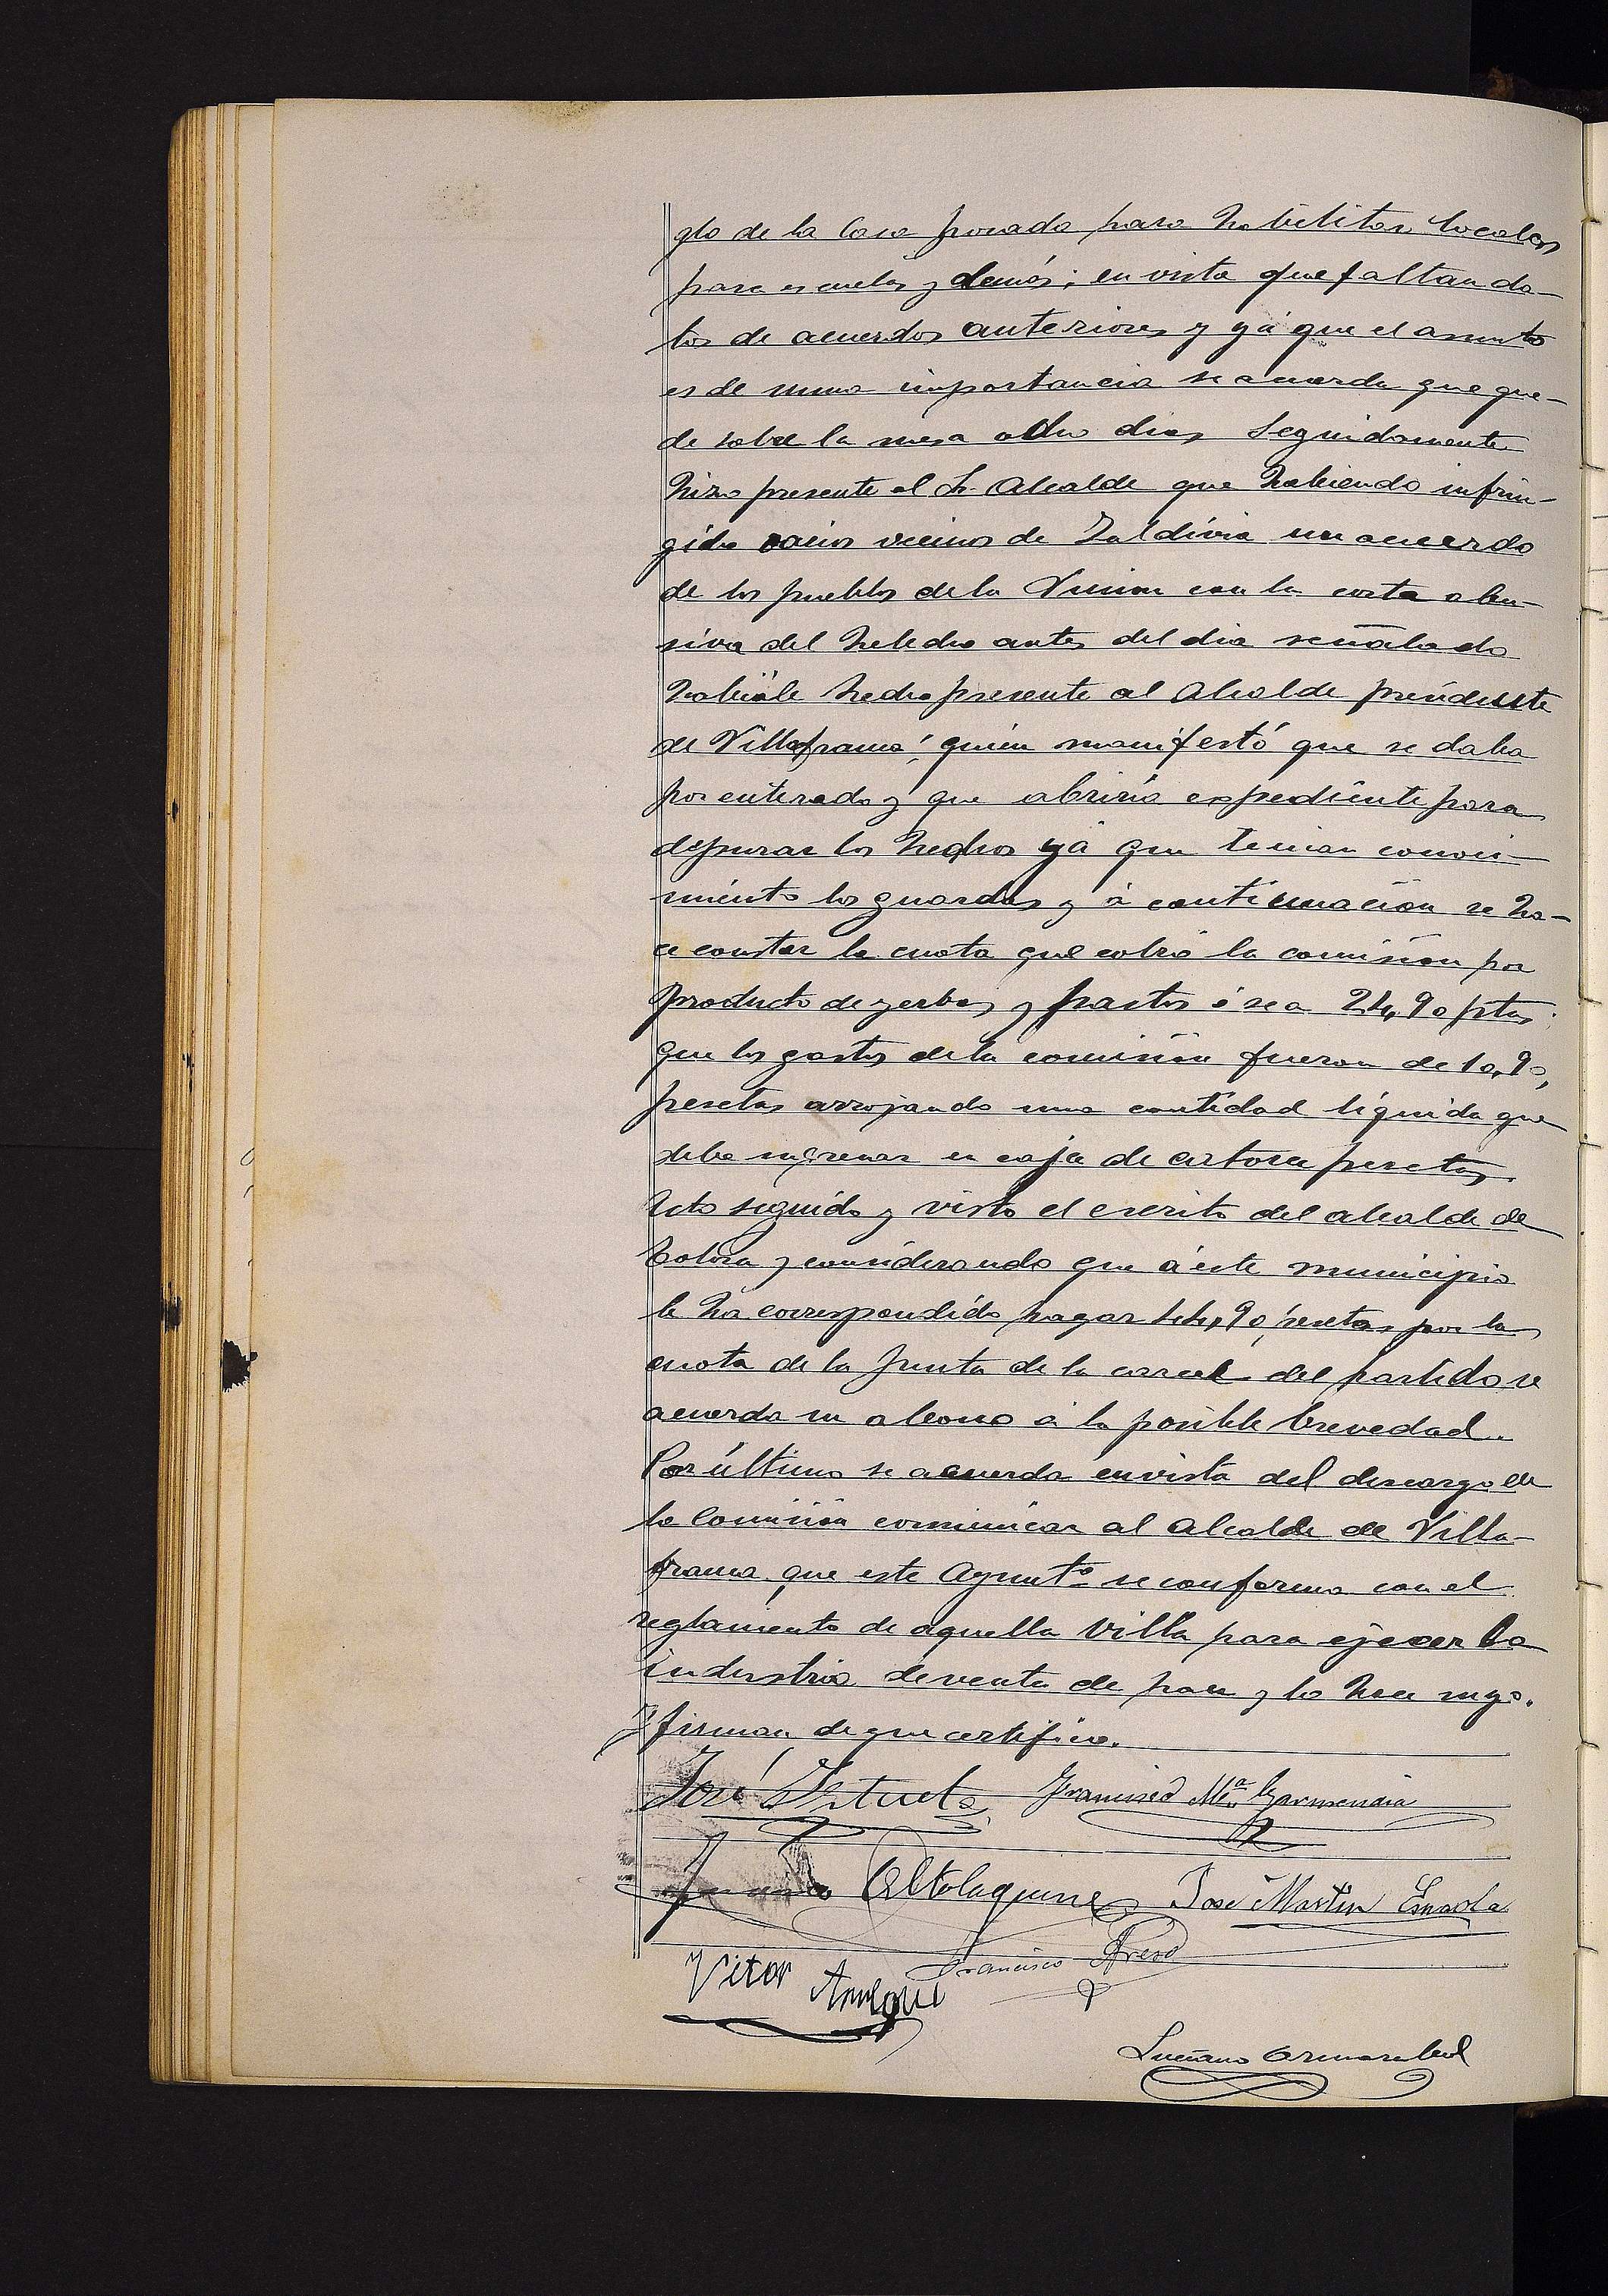 glo de la Casa posada para habilitar locales
para escuelas y demás; en vista que faltan da-
tos de acuerdos anteriores y yá que el asunto
es de suma importancia se acuerda que que-
de sobre la mesa ocho dias. Seguidamente
hizo presente el Sr. Alcalde que habiendo infrin-
gido varios vecinos de Zaldivia un acuerdo
de los pueblos de la Union con la corta abu-
siva del helecho antes del dia señalado
habiale hecho presente al Alcalde presidente
de Villafranca, quien manifestó que se daba
por enterado y que abriria expediente para
depurar los hechos yá que tenian conoci-
miento los guardas y á continuación se ha-
ce constar la cuota que cobró la comisión por
producto de yerbas y pastos ó sea 24,90 ptas;
que los gastos de la comisión fueron de 10,90,
pesetas arrojando una cantidad liquida que
debe ingresar en caja de catorce pesetas.
Acto seguido y visto el escrito del alcalde de
Tolosa y considerando que á este municipio
le ha correspondido pagar 44,90 pesetas por la
cuota de la Junta de la carcel del partido se
acuerda su abono á la posible brevedad.
Por último se acuerda en vista del descargo de
la Comisión comunicar al Alcalde de Villa-
franca que este Ayuntº se conforma con el
reglamento de aquella Villa para ejercer la
industria de venta de pan y lo hace suyo.
Y firman de que certifico.
José Iztueta Francisco Mª Garmendia
Altolaguirre José Martin Esnaola
Francisco
Vitor
Luciano